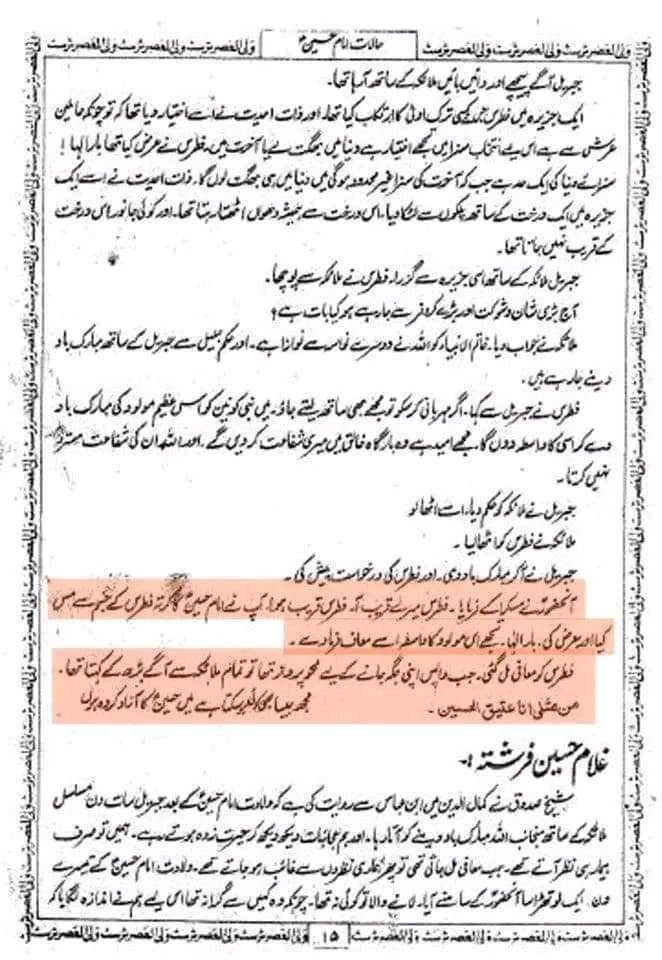 ولی العصر ٹرسٹ ولی العصر ٹرسٹ ولی العصر ٹرسٹ حالات امام حسینؑ ولی العصر ٹرسٹ ولی العصر ٹرسٹ
جبریل آگے پیچھے اور دائیں بائیں ملائکہ کے ساتھ آ رہا تھا۔
ایک جزیرہ میں فطرس جسے کسی ترک اولیٰ کا ارتکاب کیا تھا۔ اور ذات احدیت نے اسے اختیار دیا تھا کہ تو چونکہ حاملین
عرش سے ہے اس لیے انتخاب سزا میں تجھے اختیار ہے دنیا میں بھگت لے یا آخرت میں۔ فطرس نے عرض کیا تھا بار الٰہا!
سزائے دنیا کی ایک حد ہے جب کہ آخرت کی سزا غیر محدود ہو گی میں دنیا میں ہی بھگت لوں گا۔ ذات احدیت نے اسے ایک
جزیرہ میں ایک درخت کے ساتھ پلکوں سے لٹکا دیا۔ اس درخت سے ہمیشہ دھواں اٹھتا رہتا تھا۔ اور کوئی جانور اس درخت
کے قریب نہیں جاتا تھا۔
جبریل ملائکہ کے ساتھ اسی جزیرہ سے گزرا۔ فطرس نے ملائکہ سے پوچھا۔
آج بڑی شان و شوکت اور بڑے کروفر سے جا رہے ہو کیا بات ہے؟
ملائکہ نے جواب دیا۔ خاتم الانبیاء کو اللہ نے دوسرے نواسہ سے نوازا ہے۔ اور حکم جلیل سے جبریل کے ساتھ مبارک باد
دینے جا رہے ہیں۔
فطرس نے جبریل سے کہا۔ اگر مہربانی کر سکو تو مجھے بھی ساتھ لیتے جاؤ۔ میں نبی کونین کو اس عظیم مولود کی مبارک باد
دے کر اسی کا واسطہ دوں گا۔ مجھے امید ہے وہ بارگاہ خالق میں میری شفاعت کر دیں گے۔ اور اللہ ان کی شفاعت مسترد
نہیں کرتا۔
جبریل نے ملائکہ کو حکم دیا۔ اسے اٹھا لو
ملائکہ نے فطرس کو اٹھا لیا۔
جبریل نے آ کر مبارک باد دی۔ اور فطرس کی درخواست پیش کی۔
آنحضورؐ نے مسکرا کے فرمایا۔ فطرس میرے قریب آ۔ فطرس قریب ہوا۔ آپ نے امام حسینؑ کا کرتہ فطرس کے جسم سے مس
کیا اور عرض کی۔ بار الٰہا۔ تجھے اسی مولود کا واسطہ اسے معاف فرما دے۔
فطرس کو معافی مل گئی۔ جب واپس اپنی جگہ جانے کے لیے محو پرواز تھا تو تمام ملائکہ سے آگے بڑھ کے کہتا تھا۔
من مثلی انا عتیق الحسین۔ مجھ جیسا بھی کوئی ہو سکتا ہے میں حسینؑ کا آزاد کردہ ہوں
غلام حسین فرشتہ :۔
شیخ صدوق نے کمال الدین میں ابن عباس سے روایت کی ہے کہ ولادت امام حسینؑ کے بعد جبریل سات دن مسلسل
ملائکہ کے ساتھ منجانب اللہ مبارک باد دینے کو آتا رہا۔ اور ہم عجائبات دیکھ دیکھ کر حیرت زدہ ہوتے رہے۔ ہمیں تو صرف
بیمار ہی نظر آتے تھے۔ جب معافی مل جاتی تھی تو پھر ہماری نظروں سے غائب ہو جاتے تھے۔ ولادت امام حسینؑ کے تیسرے
دن۔ ایک لوتھڑا سا آنحضورؐ کے سامنے آیا۔ لانے والا تو کوئی نہ تھا۔ چونکہ وہ کہیں سے گرا نہ تھا اس لیے ہم نے اندازہ لگایا کہ
ولی العصر ٹرسٹ ولی العصر ٹرسٹ ولی العصر ٹرسٹ ۱۵ ولی العصر ٹرسٹ ولی العصر ٹرسٹ ولی العصر ٹرسٹ